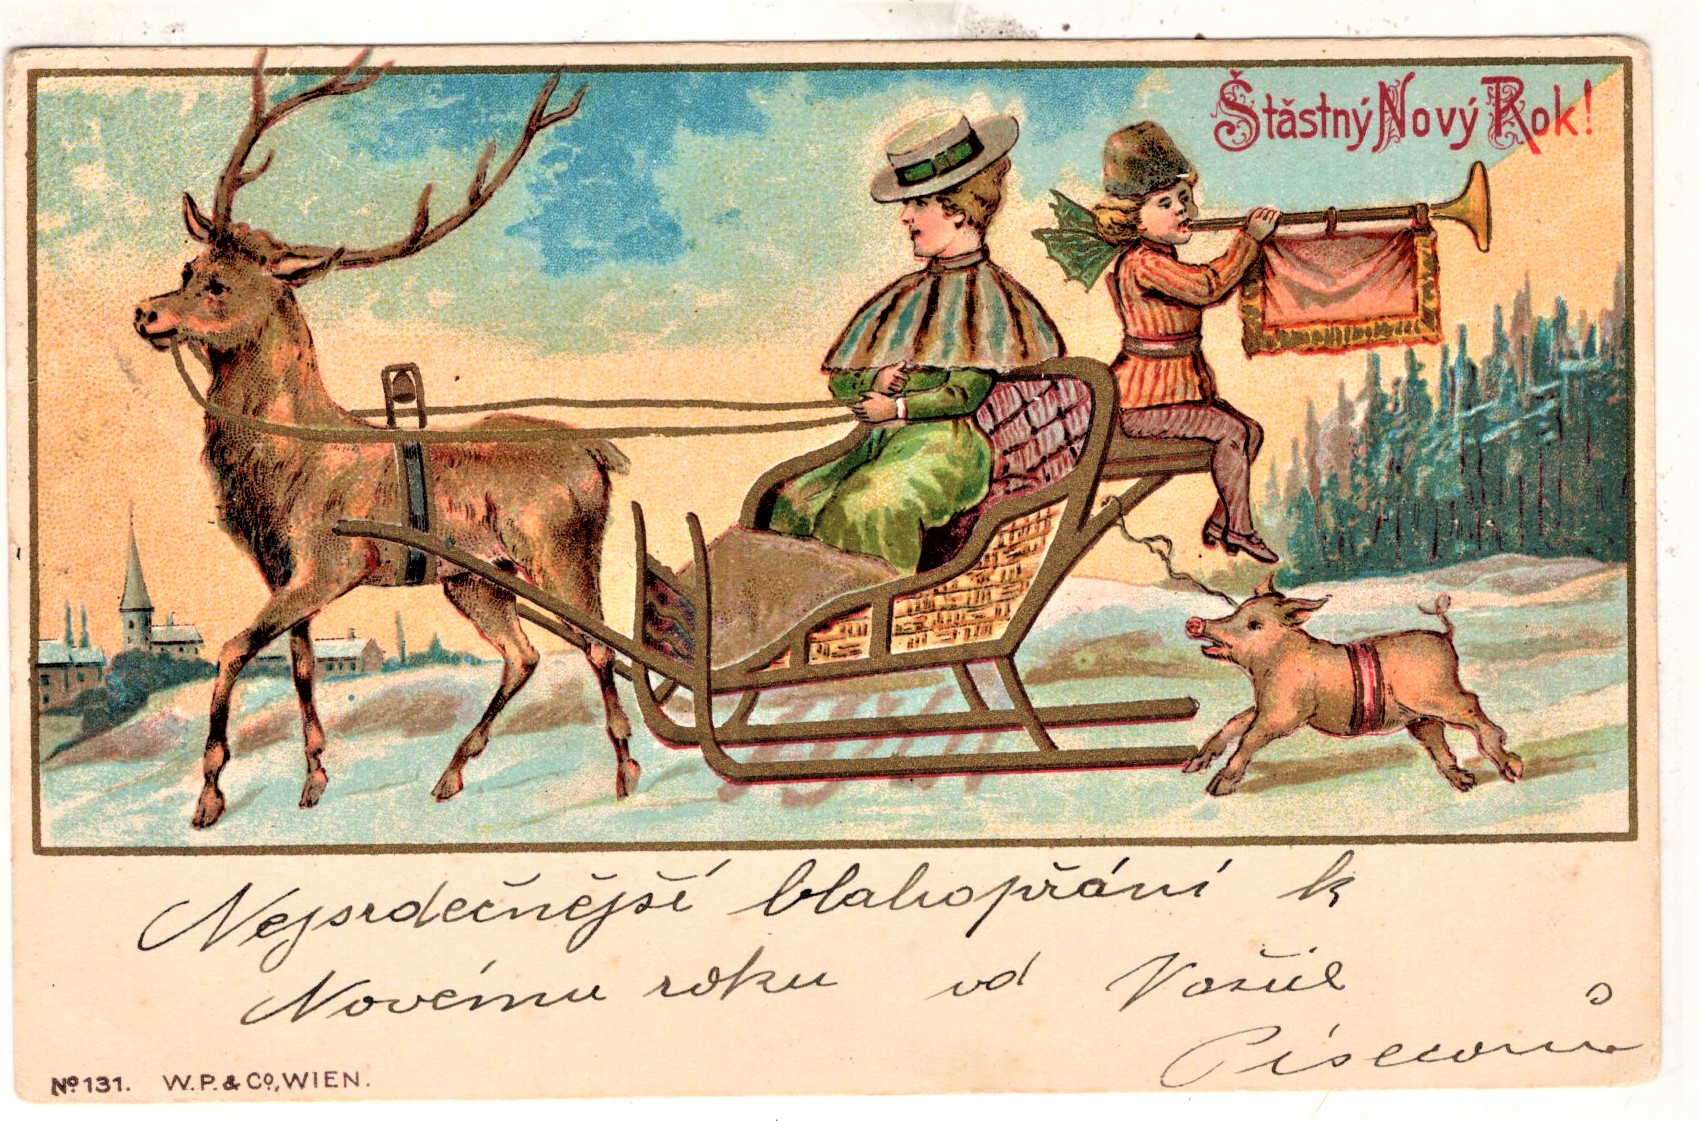 Štastný Nový Rok!
Nejsrdečnější blahopřání k
Novému roku od
No 131. W.P. & Co, WIEN.